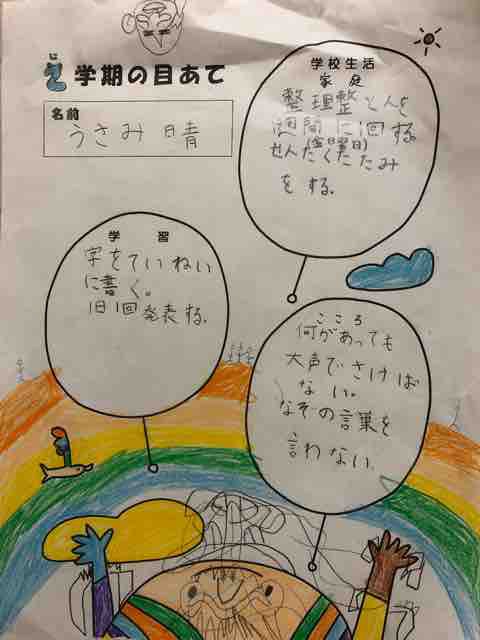 に
2学期の目あて
名前
うさみ 晴
学校生活
家庭
整理整とんを
週間に1回する。
(金曜日)
せんたくたたみ
をする。
学習
字をていねい
に書く。
1日1回発表する。
こころ
何があっても
大声でさけば
ない。
なぞの言葉を
言わない。